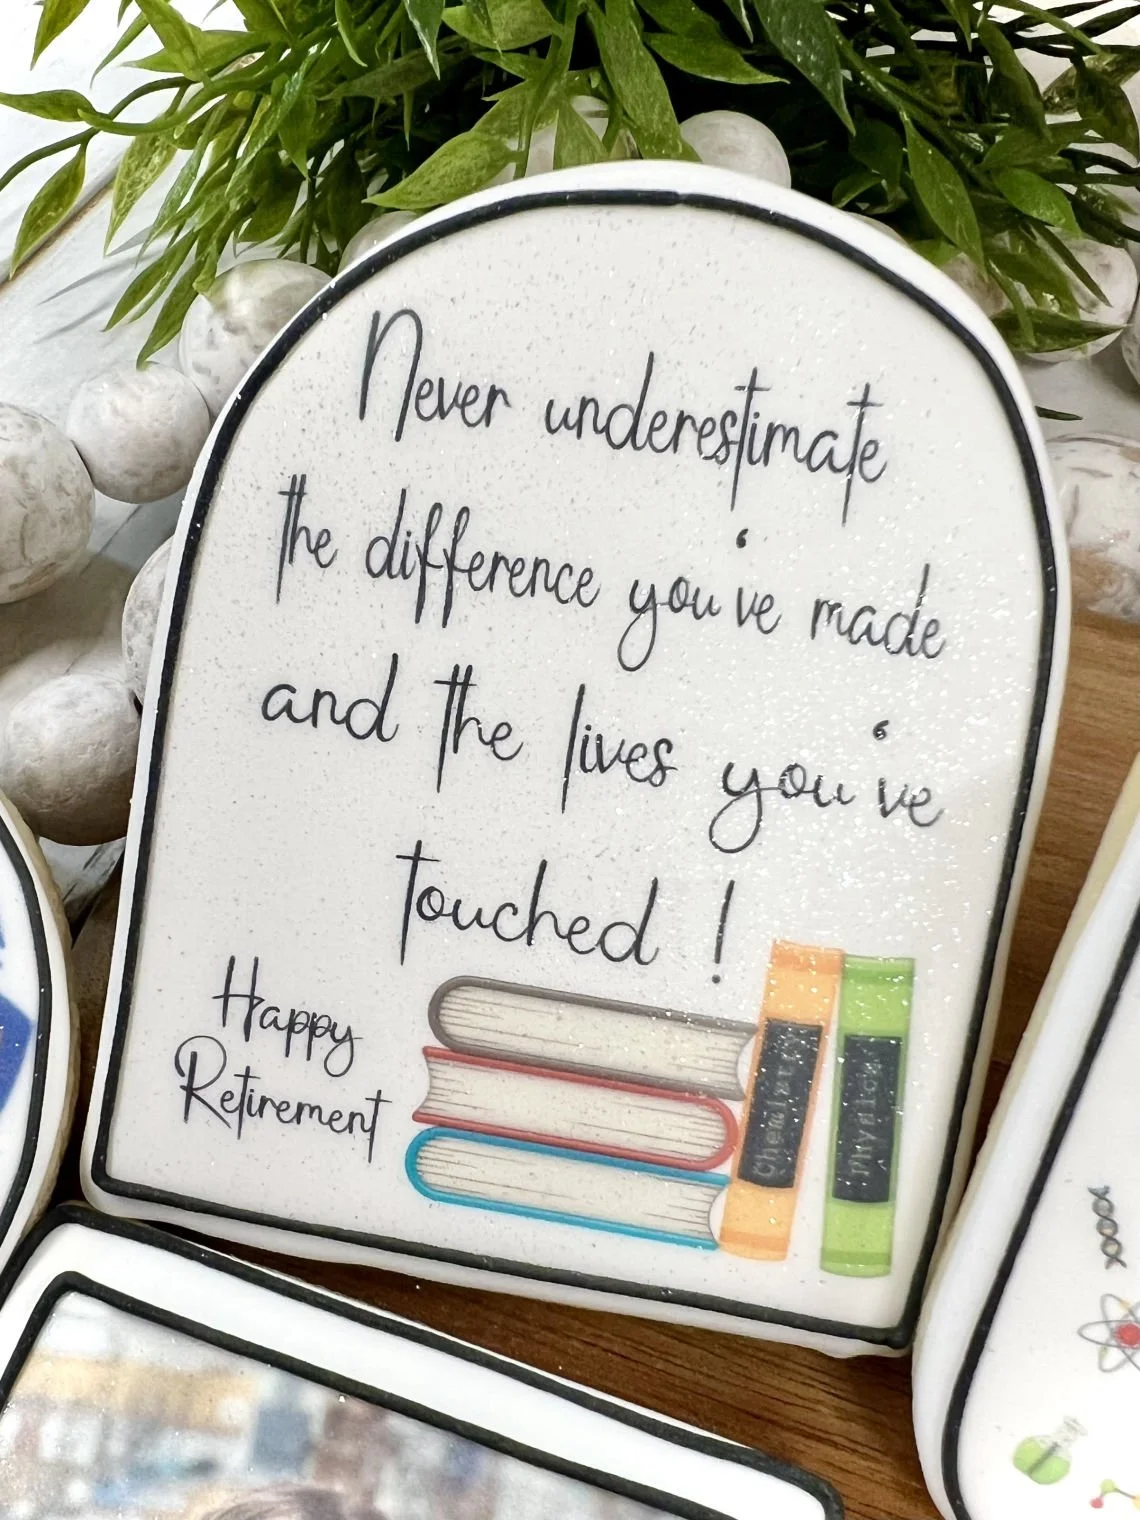 Never underestimate
the difference you‘ve made
and the lives you‘ve
touched !
Happy
Retirement
Chemistry
Physics